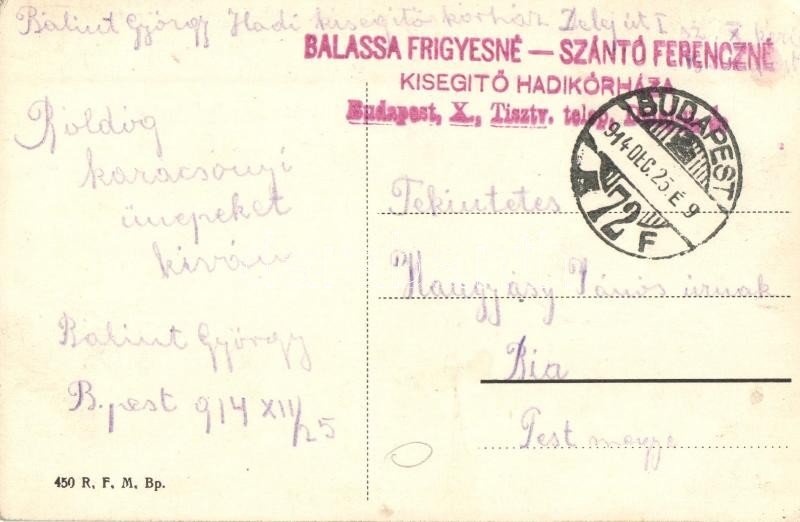 Bálint György Hadi kisegitő kórház Delej út 1 sz. X
BALASSA FRIGYESNÉ — SZÁNTÓ FERENCZNÉ
KISEGITŐ HADIKÓRHÁZA
Budapest, X., Tisztv. telep,
BUDAPEST
914 DEC. 25. É 9
72 F
Boldog
karacsonyi
ünepeket
kiván
Bálint György
B.pest 914 XII/25
Tekintetes
János úrnak
Bia
Pest megye
450 R. F. M. Bp.